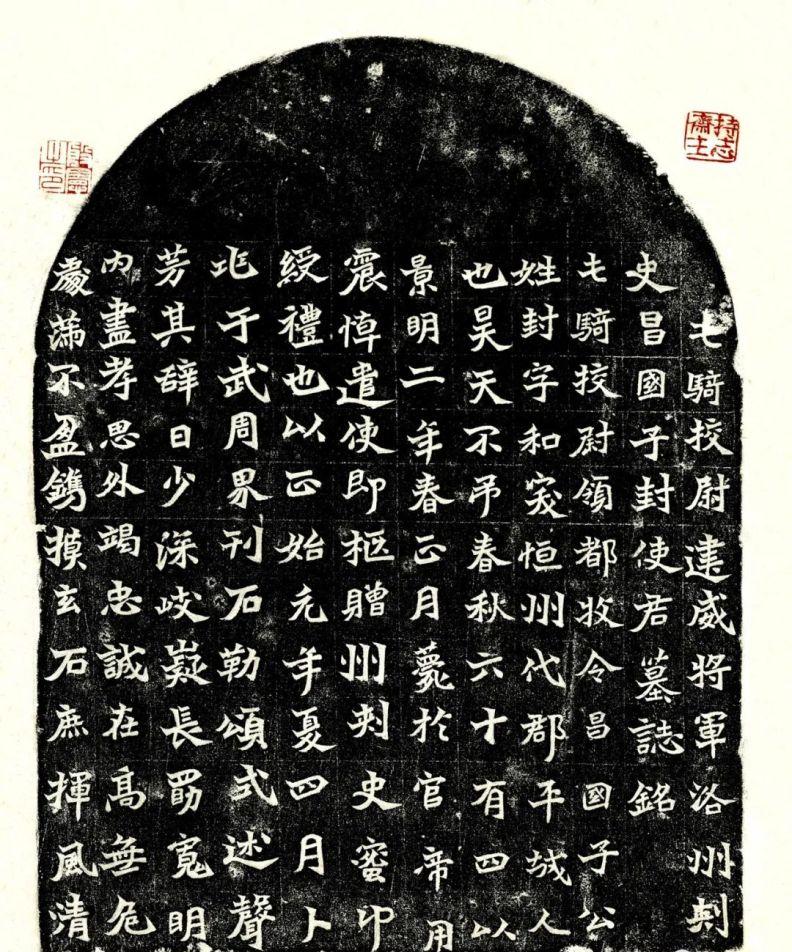 屯騎校尉建威將軍洛州刾
史昌國子封使君墓誌銘
屯騎校尉領都牧令昌國子公
姓封字和突恒州代郡平城人
也昊天不弔春秋六十有四以
景明二年春正月薨於官帝用
震悼遣使即柩贈州刾史蜜印
綬禮也以正始元年夏四月卜
兆于武周界刊石勒頌式述聲
芳其辭曰少深岐嶷長勗寬明
內盡孝思外竭忠誠在高無危
處滿不盈鐫摸玄石庶揮風清
持志齋主